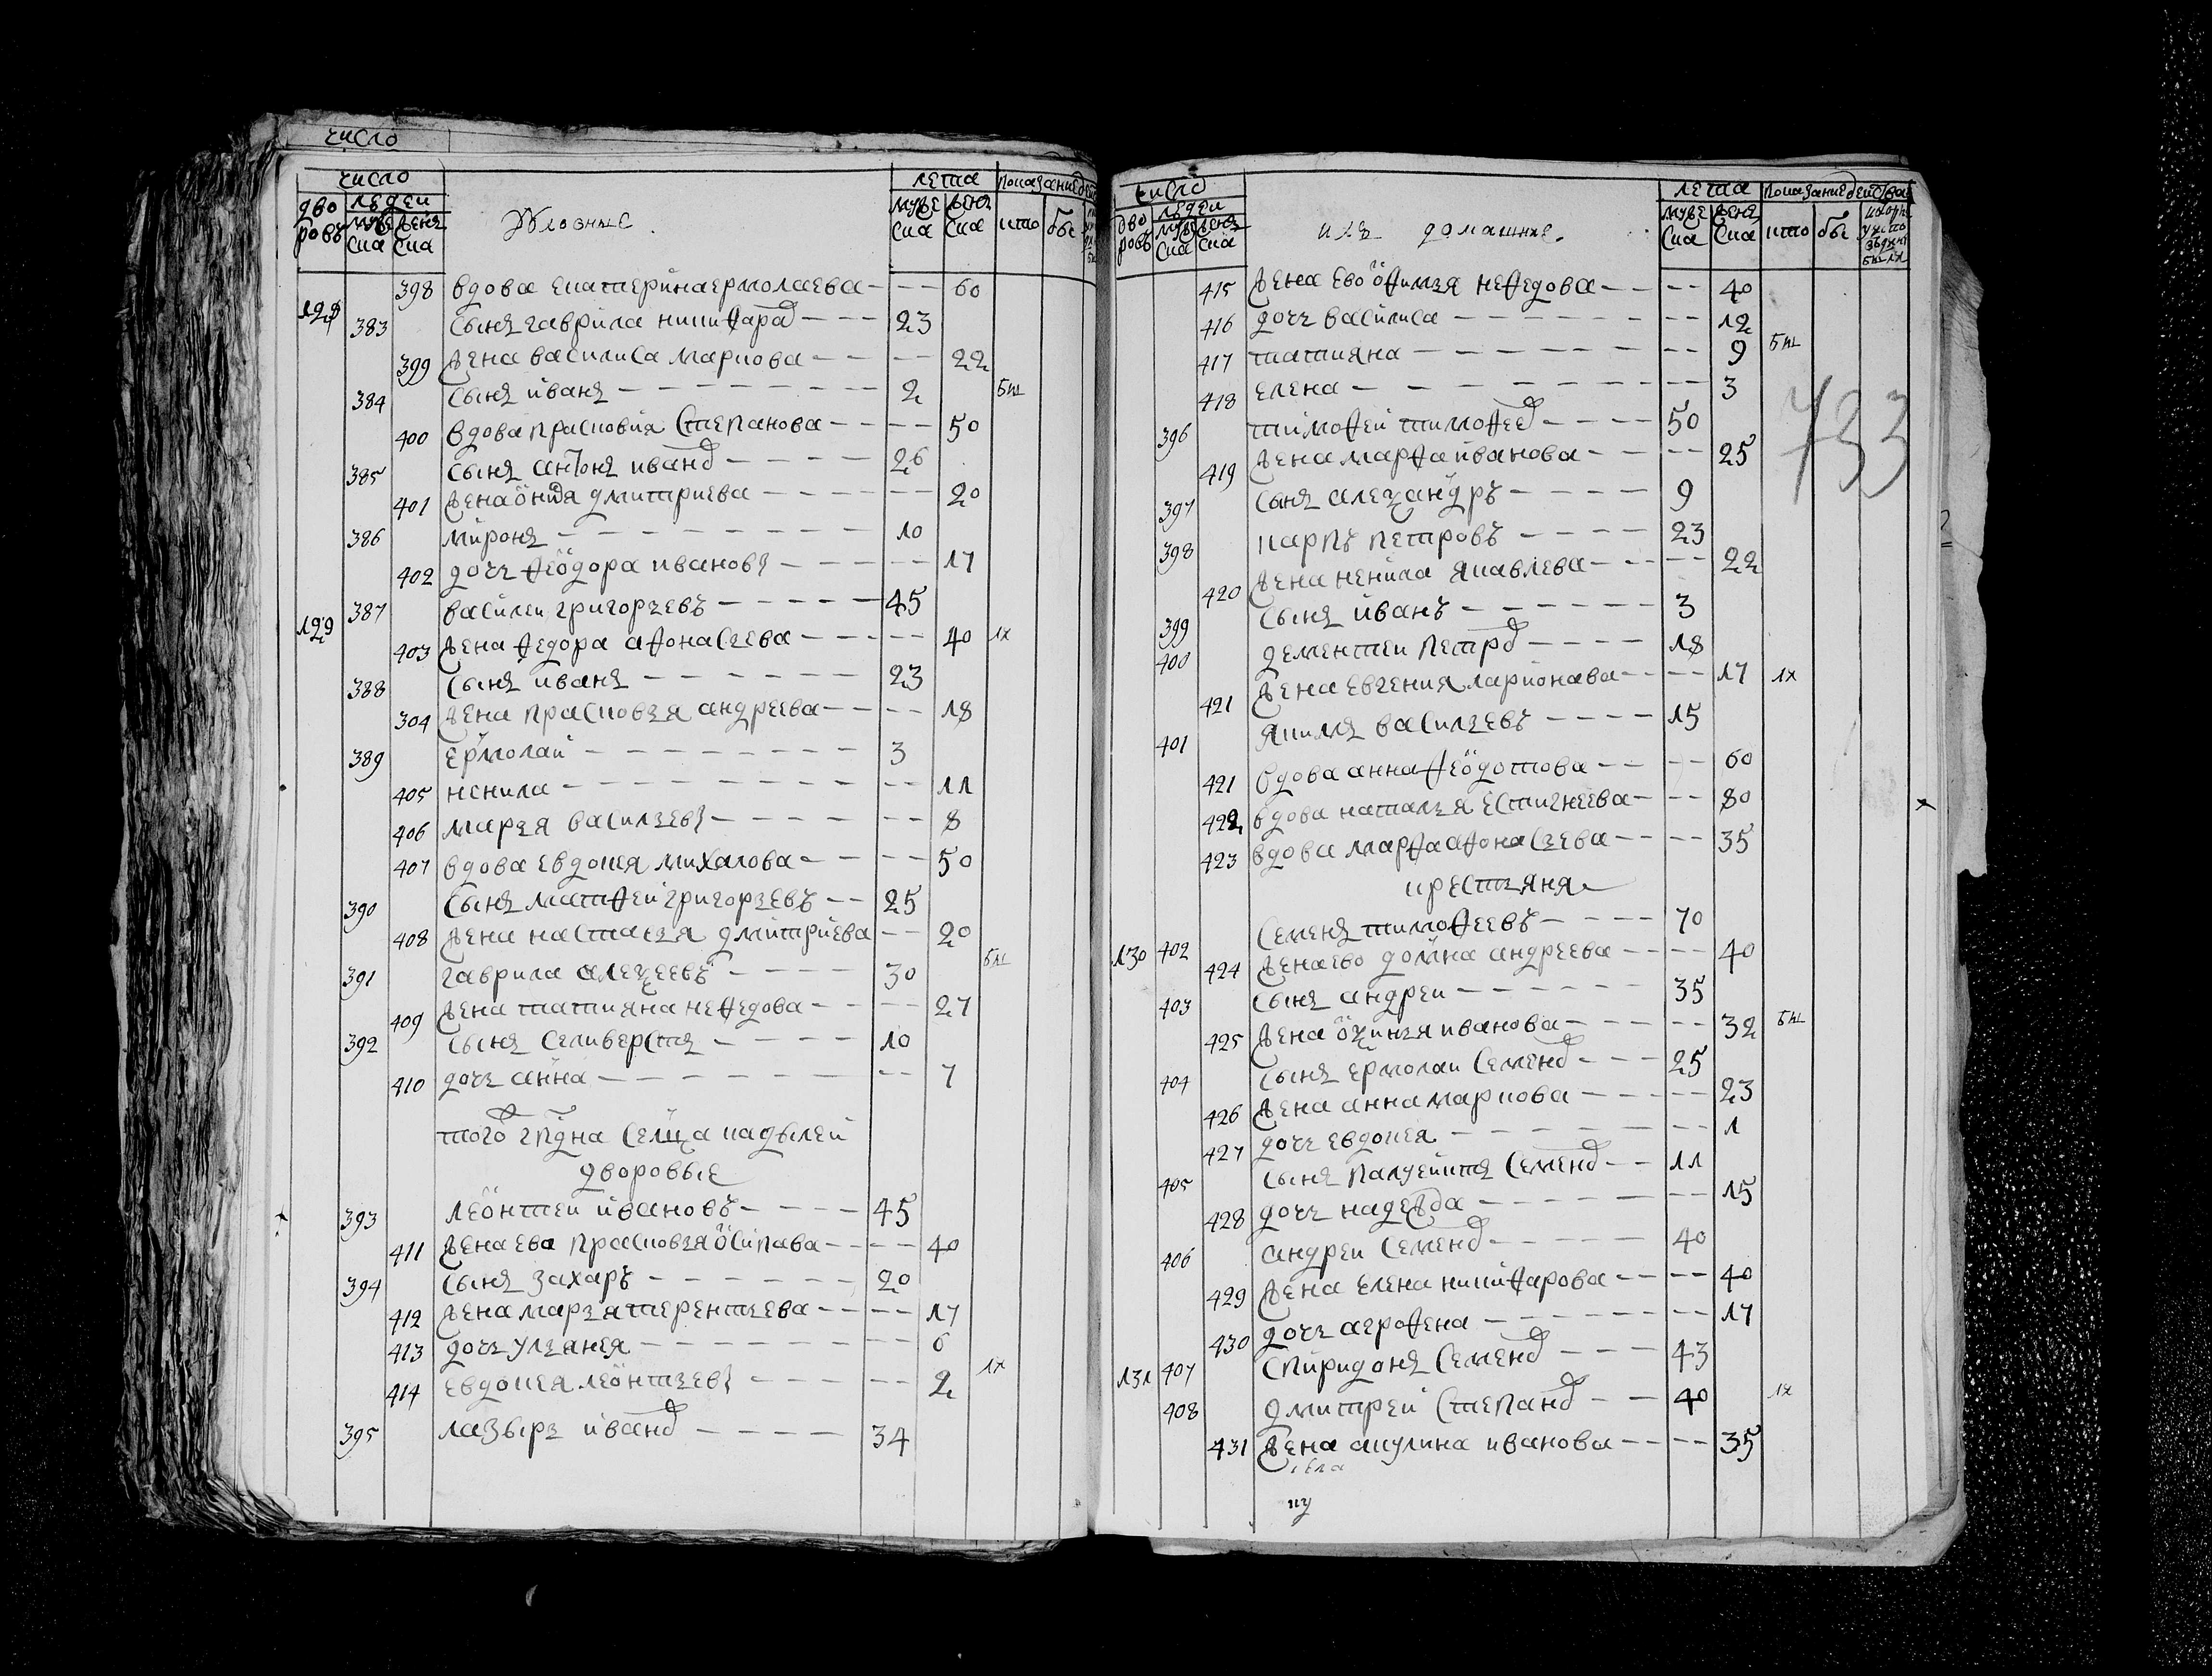 число
число
дво ровъ
людеи
муже ска
женя ска
Духовные
лета
муже ска
женя ска
показание деиства
кто
бы
398 вдова екатерина ермолаева - - - 60
128 383 сынъ гаврила никифаров - - - 23
399 жена василиса маркова - - - 22
384 сынъ иванъ - - - 2 бы
400 вдова прасковия степанова - - - 50
385 сынъ антонъ иванов - - - 26
401 жена дмитриева - - - 20
386 миронъ - - - 10
402 дочь феодора иванова - - - 17
129 387 василеи григорьевъ - - - 45
403 жена федора афонасьева - - - 40 1х
388 сынъ иванъ - - - 23
304 жена прасковья андреева - - - 18
389 ермолаи - - - 3
405 ненила - - - 11
406 марья васильева - - - 8
407 вдова евдокея михалова - - - 50
390 сынъ матфеи григорьевъ - - 25
408 жена настасья дмитриева - - 20
391 гаврила алеѯеевъ - - - 30 бы
409 жена татияна нефедова - - - 27
392 сынъ селиверстъ - - - 10
410 дочь анна - - - 7
того гпдна селца кадылеи
дворовые
393 леонтеи ивановъ - - - 45
411 жена ева прасковья осипава - - - 40
394 сынъ захаръ - - - 20
412 жена марья терентьева - - - 17
413 дочь ульянея - - - 6
414 евдокея леонтьева - - - 2 1х
395 лазырь иванов - - - 34
число
дво ровъ
людеи
муже ска
женя ска
ихъ домашние
лета
муже ска
женя ска
показание деиства
кто
бы
415 жена ево офимья нефедова - - - 40
416 дочь василиса - - - 12
417 татияна - - - 9 бы
418 елена - - - 3
396 тимофеи тимофеев - - - 50
419 жена марфа иванова - - - 25
397 сынъ алеѯандръ - - - 9
398 карпъ петровъ - - - 23
420 жена ненила яковлева - - - 22
399 сынъ иванъ - - - 3
400 дементеи петров - - - 18
421 жена евгения ларионава - - - 17 1х
401 якимъ васильевъ - - - 15
421 вдова анна феодотова - - - 60
422 вдова наталья естигнеева - - - 80
423 вдова марфа афонасьева - - - 35
крестьяня
130 402 семенъ тимофеевъ - - - 70
424 жена ево домна андреева - - - 40
403 сынъ андреи - - - 35
425 жена оѯинья иванова - - - 32 бы
404 сынъ ермолаи семенов - - - 25
426 жена анна маркова - - - 23
427 дочь евдокея - - - 1
405 сынъ калуеиктъ семенов - - 11
428 дочь надежда - - - 15
406 андреи семенов - - - 40
429 жена елена никифарова - - - 40
430 дочь агрофена - - - 17
131 407 спиридонъ семенов - - - 43
408 дмитреи степанов - - 40 1х
431 жена акулина иванова - - - 35
733